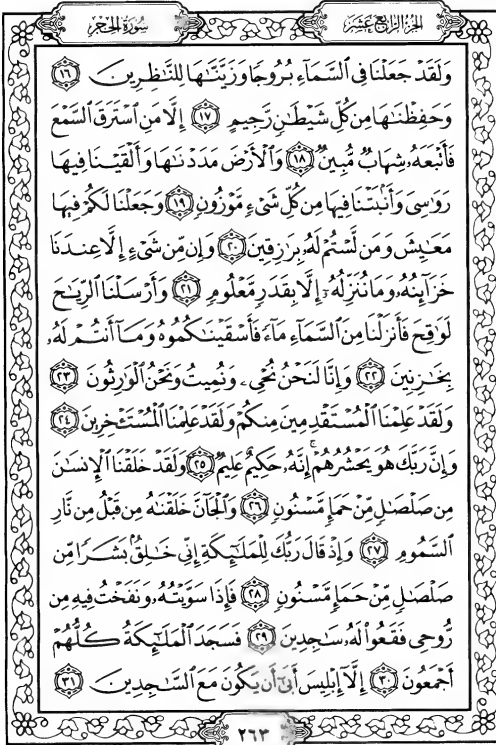 الجزء الرابع عشر
سورة الحجر
وَلَقَدۡ جَعَلۡنَا فِي ٱلسَّمَآءِ بُرُوجٗا وَزَيَّنَّٰهَا لِلنَّٰظِرِينَ ١٦
وَحَفِظۡنَٰهَا مِن كُلِّ شَيۡطَٰنٖ رَّجِيمٍ ١٧ إِلَّا مَنِ ٱسۡتَرَقَ ٱلسَّمۡعَ
فَأَتۡبَعَهُۥ شِهَابٞ مُّبِينٞ ١٨ وَٱلۡأَرۡضَ مَدَدۡنَٰهَا وَأَلۡقَيۡنَا فِيهَا
رَوَٰسِيَ وَأَنۢبَتۡنَا فِيهَا مِن كُلِّ شَيۡءٖ مَّوۡزُونٖ ١٩ وَجَعَلۡنَا لَكُمۡ فِيهَا
مَعَٰيِشَ وَمَن لَّسۡتُمۡ لَهُۥ بِرَٰزِقِينَ ٢٠ وَإِن مِّن شَيۡءٍ إِلَّا عِندَنَا
خَزَآئِنُهُۥ وَمَا نُنَزِّلُهُۥٓ إِلَّا بِقَدَرٖ مَّعۡلُومٖ ٢١ وَأَرۡسَلۡنَا ٱلرِّيَٰحَ
لَوَٰقِحَ فَأَنزَلۡنَا مِنَ ٱلسَّمَآءِ مَآءٗ فَأَسۡقَيۡنَٰكُمُوهُ وَمَآ أَنتُمۡ لَهُۥ
بِخَٰزِنِينَ ٢٢ وَإِنَّا لَنَحۡنُ نُحۡيِۦ وَنُمِيتُ وَنَحۡنُ ٱلۡوَٰرِثُونَ ٢٣
وَلَقَدۡ عَلِمۡنَا ٱلۡمُسۡتَقۡدِمِينَ مِنكُمۡ وَلَقَدۡ عَلِمۡنَا ٱلۡمُسۡتَـٔۡخِرِينَ ٢٤
وَإِنَّ رَبَّكَ هُوَ يَحۡشُرُهُمۡۚ إِنَّهُۥ حَكِيمٌ عَلِيمٞ ٢٥ وَلَقَدۡ خَلَقۡنَا ٱلۡإِنسَٰنَ
مِن صَلۡصَٰلٖ مِّنۡ حَمَإٖ مَّسۡنُونٖ ٢٦ وَٱلۡجَآنَّ خَلَقۡنَٰهُ مِن قَبۡلُ مِن نَّارِ
ٱلسَّمُومِ ٢٧ وَإِذۡ قَالَ رَبُّكَ لِلۡمَلَٰٓئِكَةِ إِنِّي خَٰلِقُۢ بَشَرٗا مِّن
صَلۡصَٰلٖ مِّنۡ حَمَإٖ مَّسۡنُونٖ ٢٨ فَإِذَا سَوَّيۡتُهُۥ وَنَفَخۡتُ فِيهِ مِن
رُّوحِي فَقَعُواْ لَهُۥ سَٰجِدِينَ ٢٩ فَسَجَدَ ٱلۡمَلَٰٓئِكَةُ كُلُّهُمۡ
أَجۡمَعُونَ ٣٠ إِلَّآ إِبۡلِيسَ أَبَىٰٓ أَن يَكُونَ مَعَ ٱلسَّٰجِدِينَ ٣١
٢٦٣